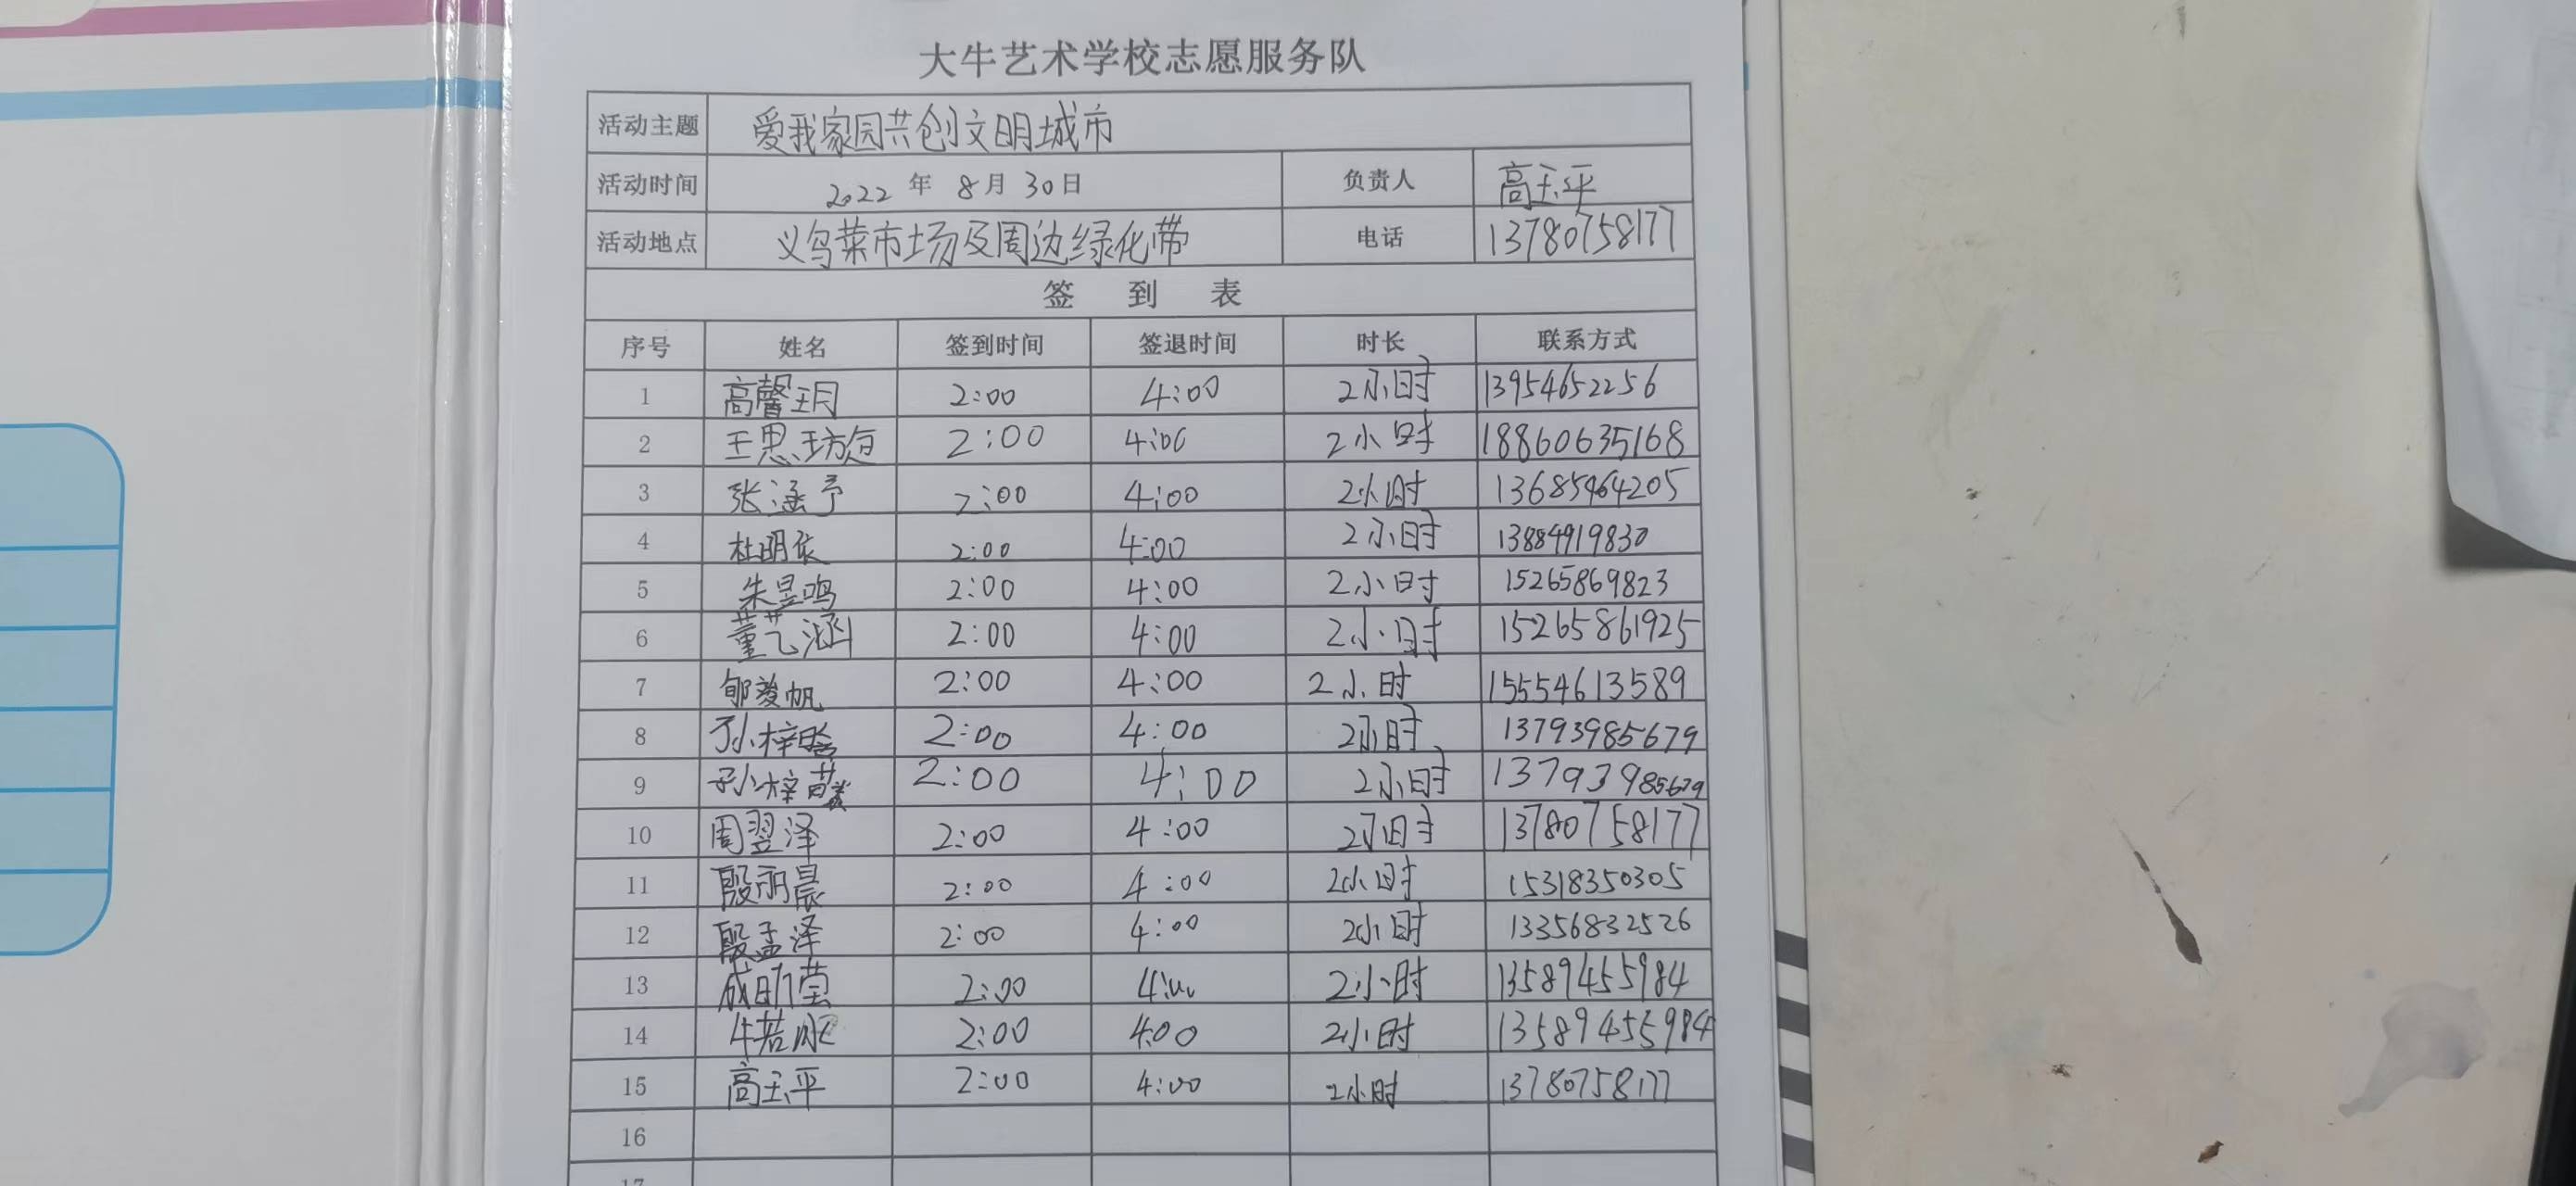 大牛艺术学校志愿服务队
活动主题 爱我家园共创文明城市
活动时间 2022 年 8月 30日 负责人 高玉平
活动地点 义乌菜市场及周边绿化带 电话 13780758177
签 到 表
序号 姓名 签到时间 签退时间 时长 联系方式
1 高馨玥 2:00 4:00 2小时 13954652256
2 王思 2:00 4:00 2小时 18860635168
3 张涵予 2:00 4:00 2小时 13685464205
4 杜明依 2:00 4:00 2小时 13884919830
5 朱昱鸣 2:00 4:00 2小时 15265869823
6 董艺涵 2:00 4:00 2小时 15265861925
7 郇菱帆 2:00 4:00 2小时 15554613589
8 孙梓晗 2:00 4:00 2小时 13793985679
9 孙梓 2:00 4:00 2小时 13793985679
10 周翌泽 2:00 4:00 2小时 13780758177
11 殷雨晨 2:00 4:00 2小时 15318350305
12 殷孟泽 2:00 4:00 2小时 13356832526
13 成昕莹 2:00 4:00 2小时 13589455984
14 牛若 2:00 4:00 2小时 13589455984
15 高玉平 2:00 4:00 2小时 13780758177
16
17